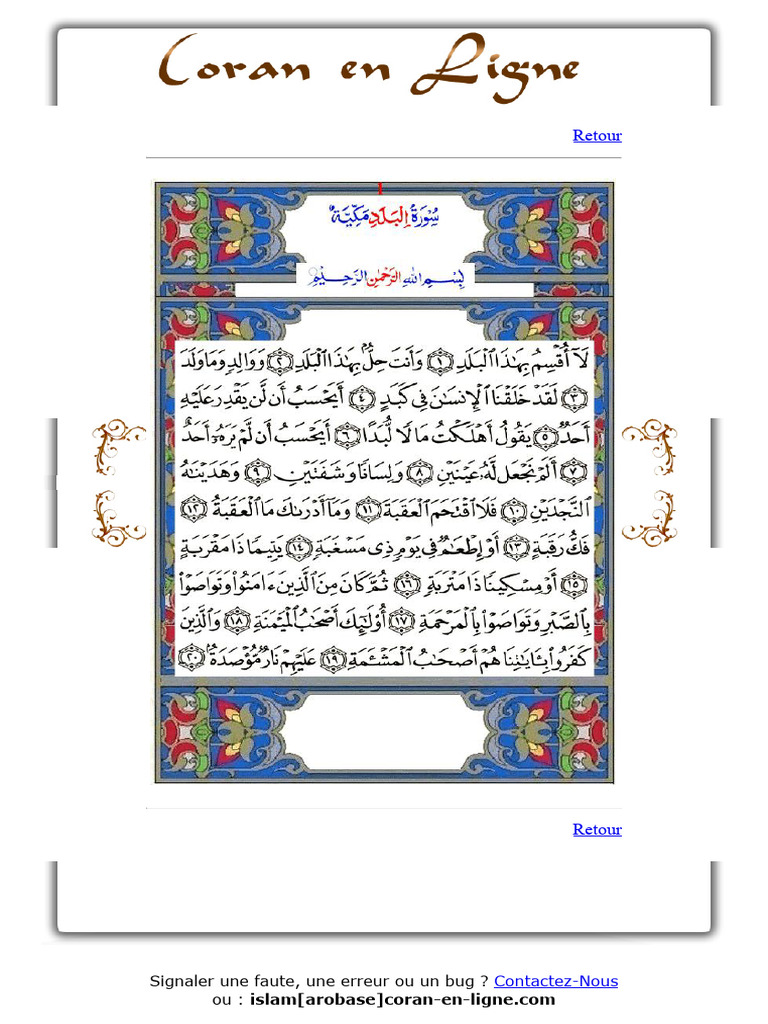 Coran en Ligne
Retour
سُورَةُ البَلَدِ مَكِّيَّةٌ
بِسْمِ اللهِ الرَّحْمٰنِ الرَّحِيْمِ
لَآ أُقۡسِمُ بِهَـٰذَا ٱلۡبَلَدِ ۝١ وَأَنتَ حِلُّۢ بِهَـٰذَا ٱلۡبَلَدِ ۝٢ وَوَالِدٍ وَمَا وَلَدَ
۝٣ لَقَدۡ خَلَقۡنَا ٱلۡإِنسَـٰنَ فِى كَبَدٍ ۝٤ أَيَحۡسَبُ أَن لَّن يَقۡدِرَ عَلَيۡهِ
أَحَدٌ ۝٥ يَقُولُ أَهۡلَكۡتُ مَالًا لُّبَدًا ۝٦ أَيَحۡسَبُ أَن لَّمۡ يَرَهُۥٓ أَحَدٌ
۝٧ أَلَمۡ نَجۡعَل لَّهُۥ عَيۡنَيۡنِ ۝٨ وَلِسَانًا وَشَفَتَيۡنِ ۝٩ وَهَدَيۡنَـٰهُ
ٱلنَّجۡدَيۡنِ ۝١٠ فَلَا ٱقۡتَحَمَ ٱلۡعَقَبَةَ ۝١١ وَمَآ أَدۡرَىٰكَ مَا ٱلۡعَقَبَةُ ۝١٢
فَكُّ رَقَبَةٍ ۝١٣ أَوۡ إِطۡعَـٰمٌ فِى يَوۡمٍ ذِى مَسۡغَبَةٍ ۝١٤ يَتِيمًا ذَا مَقۡرَبَةٍ
۝١٥ أَوۡ مِسۡكِينًا ذَا مَتۡرَبَةٍ ۝١٦ ثُمَّ كَانَ مِنَ ٱلَّذِينَ ءَامَنُوا۟ وَتَوَاصَوۡا۟
بِٱلصَّبۡرِ وَتَوَاصَوۡا۟ بِٱلۡمَرۡحَمَةِ ۝١٧ أُو۟لَـٰٓئِكَ أَصۡحَـٰبُ ٱلۡمَيۡمَنَةِ ۝١٨ وَٱلَّذِينَ
كَفَرُوا۟ بِـَٔايَـٰتِنَا هُمۡ أَصۡحَـٰبُ ٱلۡمَشۡـَٔمَةِ ۝١٩ عَلَيۡهِمۡ نَارٌ مُّؤۡصَدَةٌۢ ۝٢٠
Retour
Signaler une faute, une erreur ou un bug ? Contactez-Nous
ou : islam[arobase]coran-en-ligne.com